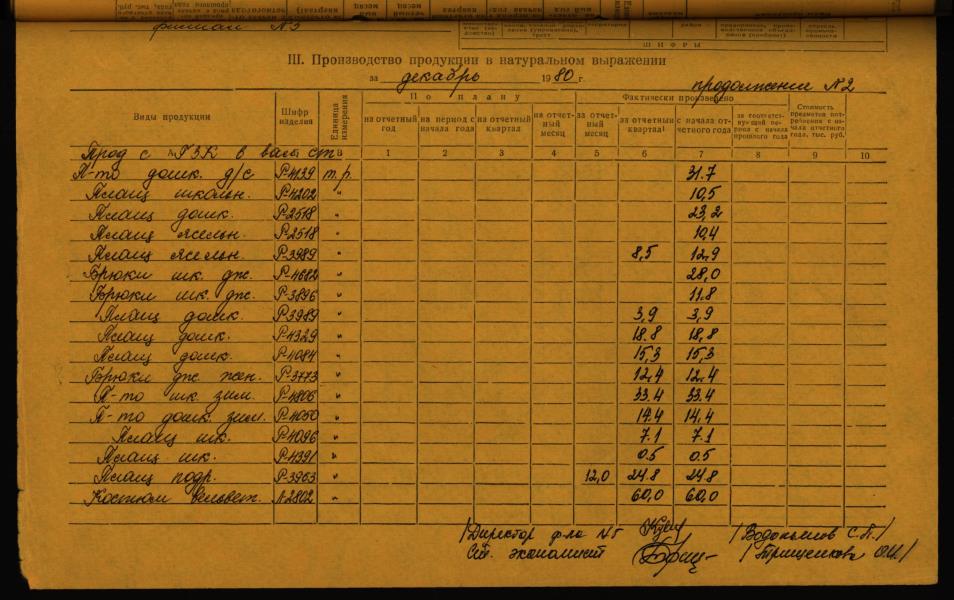 филиал N5
ШИФРЫ
III. Производство продукции в натуральном выражении
за декабрь 1980 г.
продолжение N2
Виды продукции
Шифр изделия
Единица измерения
По плану
Фактически произведено
на отчетный год
на период с начала года
на отчетный квартал
на отчетный месяц
за отчетный месяц
за отчетный квартал
с начала отчетного года
за соответствующий период с начала прошлого года
Стоимость предметов потребления с начала отчетного года, тыс. руб.
А Б В 1 2 3 4 5 6 7 8 9 10
Прод с ГЗК в вал ст
П-то дошк. д/с Р-4139 т.р. 31.7
Плащ школьн. Р-4202 " 10,5
Плащ дошк. Р-2518 " 23,2
Плащ ясельн. Р-2518 " 10,4
Плащ ясельн. Р-3989 " 8,5 12,9
Брюки шк. дж. Р-4682 " 28,0
Брюки шк. дж. Р-3896 " 11.8
Плащ дошк. Р-3989 " 3,9 3,9
Плащ дошк. Р-4329 " 18.8 18,8
Плащ дошк. Р-4084 " 15,3 15,3
Брюки дж. жен. Р-3773 " 12,4 12,4
П-то шк. зим. Р-4806 " 33.4 33.4
П-то дошк. зим. Р-4050 " 14.4 14,4
Плащ шк. Р-4096 " 7.1 7.1
Плащ шк. Р-4391 " 0.5 0.5
Плащ подр. Р-3963 " 12,0 24.8 24,8
Костюм вельвет. N2802 " 60,0 60,0
/Директор ф-ла N5 /Водопьянов С.П./
Ст. экономист /Трищенкова О.И./